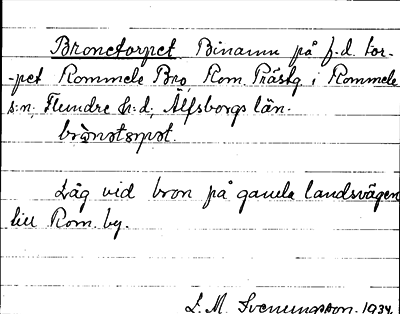 Bronetorpet Binamn på f.d. tor-
-pet Rommele Bro, Rom. Prästg. i Rommele
s:n, Flundre h:d, Älfsborgs län.
Låg vid bron på gamla landsvägen
till Rom. by.
L. M. Svenungsson. 1934.